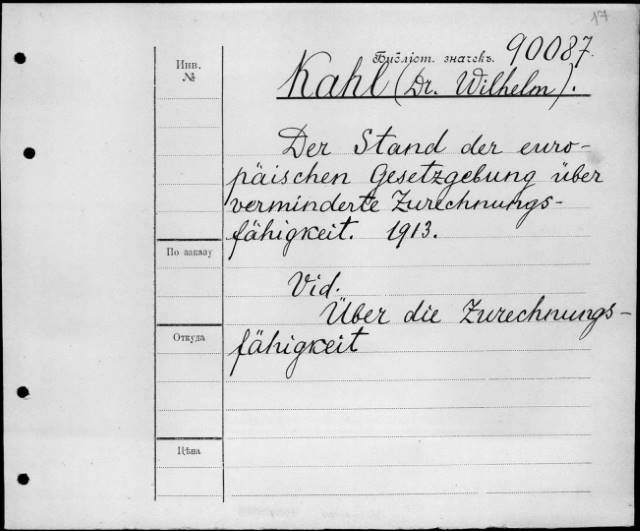 17
Библіот. значекъ. 90087.
Инв.
№
Kahl (Dr. Wilhelm).
Der Stand der euro-
päischen Gesetzgebung über
verminderte Zurechnungs-
fähigkeit. 1913.
По заказу
Vid.
Über die Zurechnungs-
fähigkeit
Откуда
Цѣна